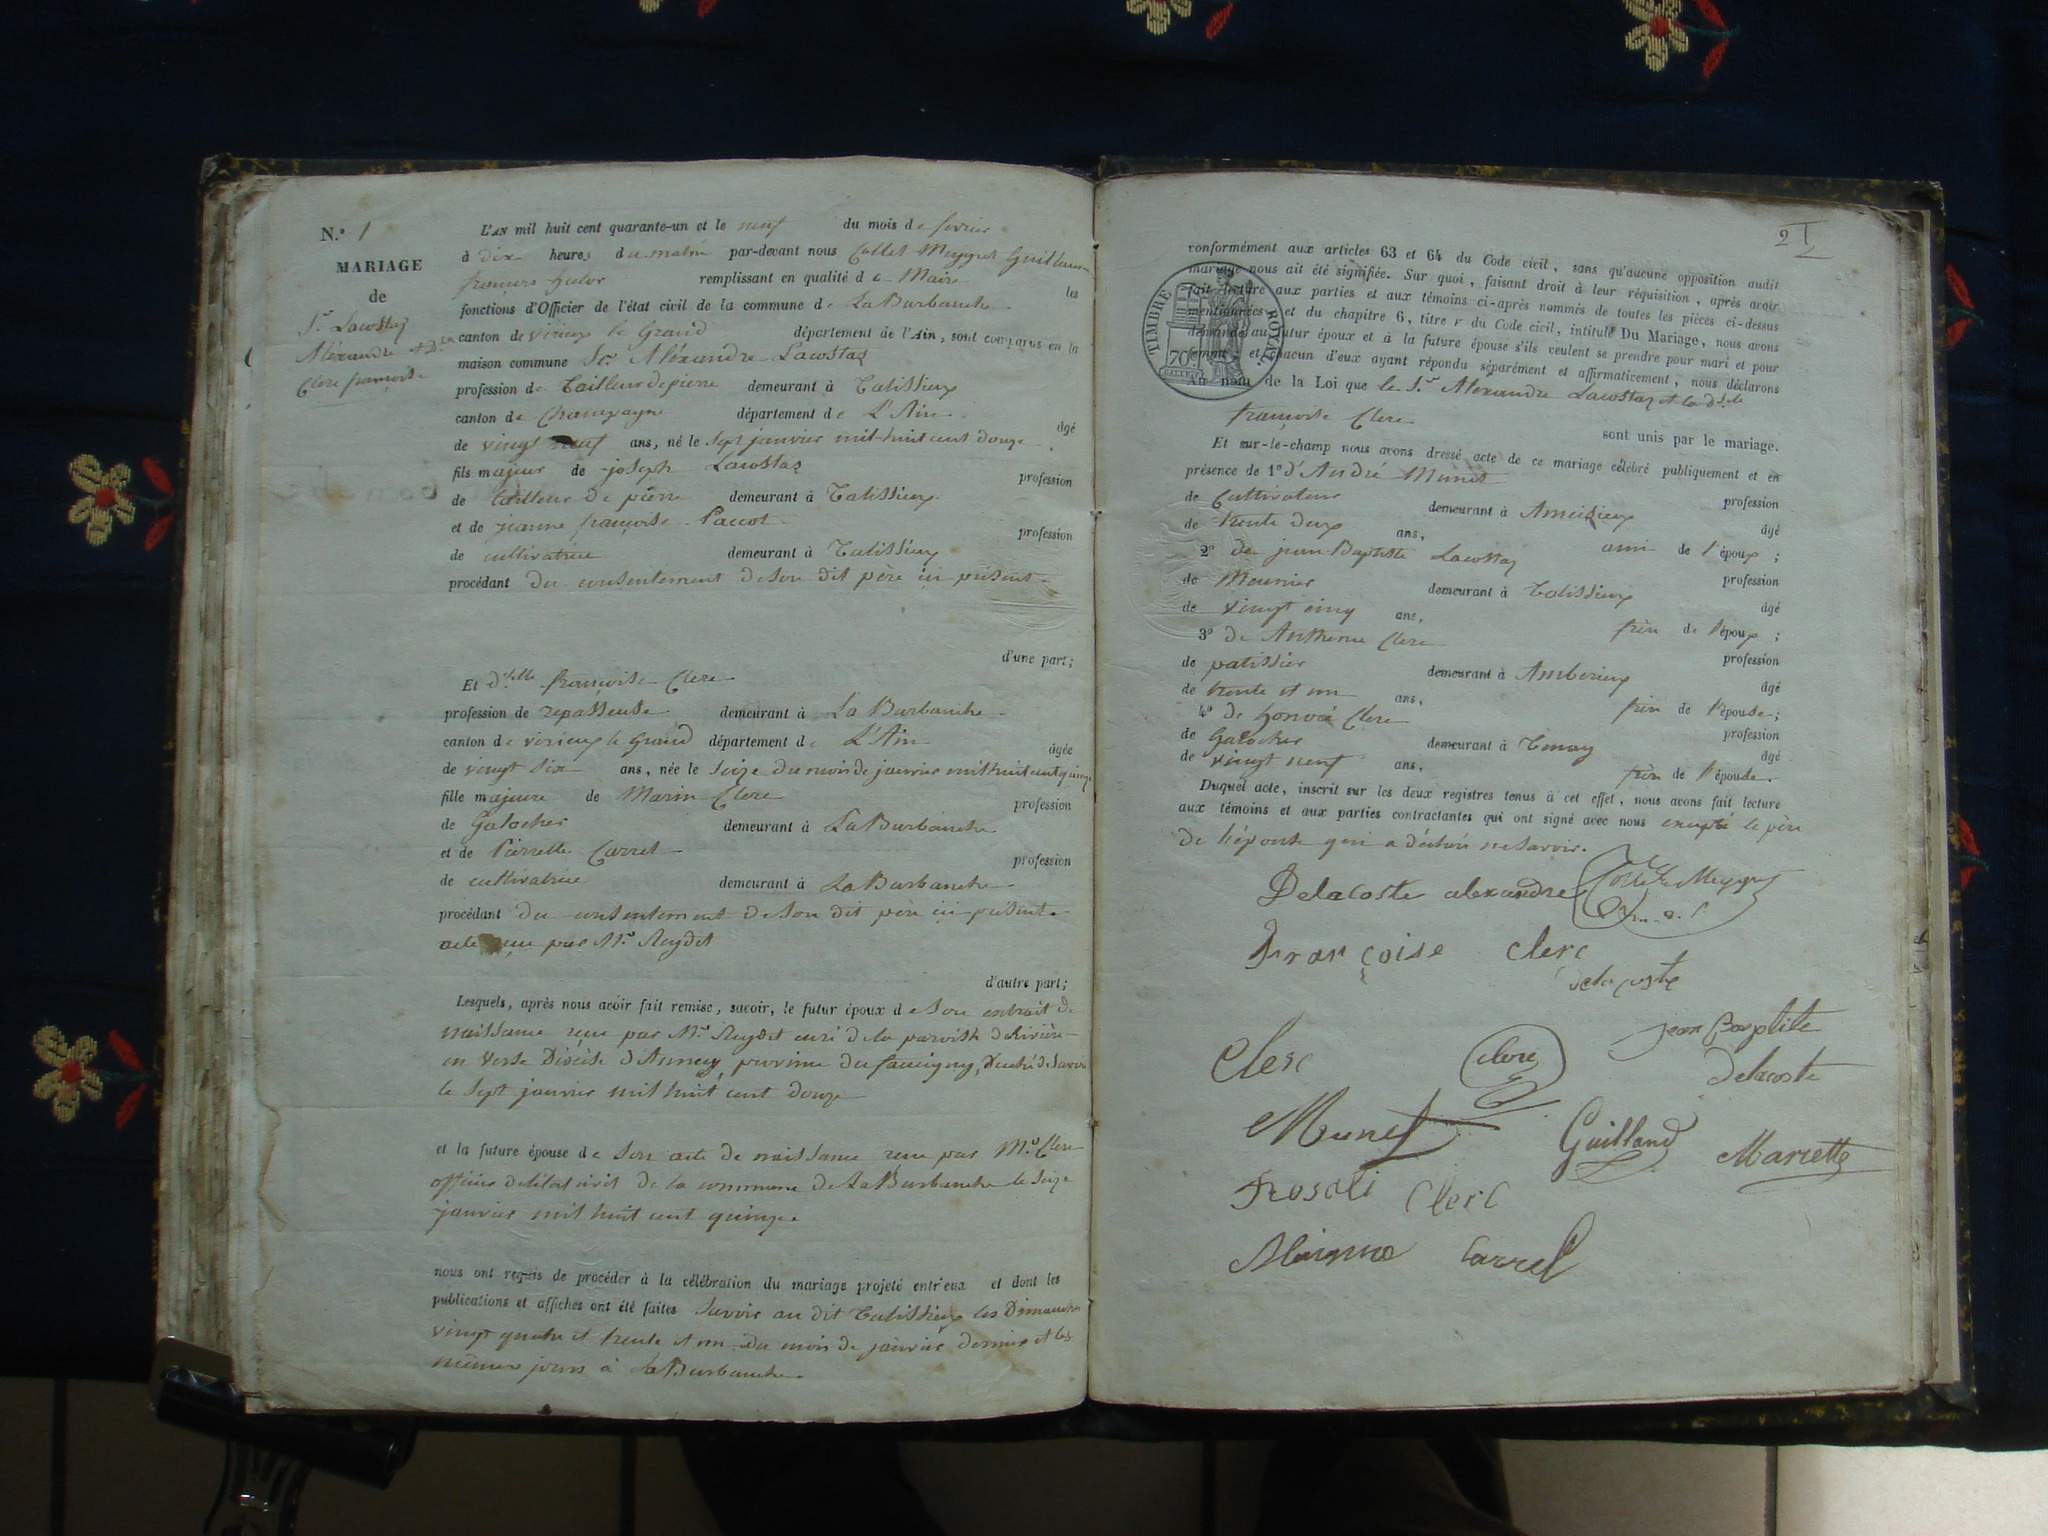 N.º 1
MARIAGE
de
S.r Lacostaz
Alexandre et D.lle
Clerc françoise
L'AN mil huit cent quarante-un et le neuf du mois de fevrier
à dix heures du matin par-devant nous Collet Meygret Guillaume
françois remplissant en qualité de Maire les
fonctions d'Officier de l'état civil de la commune de La Burbanche
canton de virieux le Grand département de l'Ain, sont comparus en la
maison commune Sr. Aléxandre Lacostaz
profession de Tailleur de pierre demeurant à Talissieux
canton de Champagne département de L'Ain âgé
de vingt neuf ans, né le sept janvier mil huit cent douze
fils majeur de joseph Lacostaz profession
de tailleur de pierre demeurant à Talissieux
et de jeanne françoise Paccot profession
de cultivatrice demeurant à Talissieux
procédant du consentement de son dit père ici présent
d'une part;
Et d.lle françoise Clerc
profession de repasseuse demeurant à La Burbanche
canton de virieux le Grand département de L'Ain âgée
de vingt six ans, née le seize du mois de janvier mil huit cent quinze
fille majeure de Marin Clerc profession
de Galocher demeurant à La Burbanche
et de Pierrette Carrel profession
de cultivatrice demeurant à La Burbanche
procédant du consentement de son dit père ici présent
acte reçu par M.e Reydet
d'autre part;
Lesquels, après nous avoir fait remise, savoir, le futur époux de son extrait de
naissance reçu par M.r Reydet curé de la paroisse de Rivière
en Verse Diocèse d'Annecy, province du faucigny, Duché de Savoie
le sept janvier mil huit cent douze
et la future épouse de son acte de naissance reçu par M.r Clerc
officier de l'état civil de la commune de La Burbanche le seize
janvier mil huit cent quinze
nous ont requis de procéder à la célébration du mariage projeté entr'eux et dont les
publications et affiches ont été faites savoir au dit Talissieux les Dimanches
vingt quatre et trente et un du mois de janvier dernier et les
mêmes jours à La Burbanche
2
conformément aux articles 63 et 64 du Code civil, sans qu'aucune opposition audit
mariage nous ait été signifiée. Sur quoi, faisant droit à leur réquisition, après avoir
fait lecture aux parties et aux témoins ci-après nommés de toutes les pièces ci-dessus
mentionnées et du chapitre 6, titre v du Code civil, intitulé Du Mariage, nous avons
demandé au futur époux et à la future épouse s'ils veulent se prendre pour mari et pour
femme, et chacun d'eux ayant répondu séparément et affirmativement, nous déclarons
Au nom de la Loi que le S.r Alexandre Lacostaz et la d.lle
françoise Clerc sont unis par le mariage.
TIMBRE ROYAL.
70.c
Et sur-le-champ nous avons dressé acte de ce mariage célébré publiquement et en
présence de 1º d'André Munet profession
de Cultivateur demeurant à Ameisieux âgé
de trente deux ans, ami de l'époux;
2º de jean Baptiste Lacostaz profession
de Meunier demeurant à Talissieux âgé
de vingt cinq ans, frère de l'époux;
3º de Antheme Clerc profession
de patissier demeurant à Amberieux âgé
de trente et un ans, frère de l'épouse;
4º de honoré Clerc profession
de Galocher demeurant à Tenay âgé
de vingt neuf ans, frère de l'épouse.
Duquel acte, inscrit sur les deux registres tenus à cet effet, nous avons fait lecture
aux témoins et aux parties contractantes qui ont signé avec nous excepté le père
de l'épouse qui a déclaré ne savoir.
Delacoste alexandre Collet Meygret
Françoise Clerc
delacoste
jean Baptiste
delacoste
Clerc Clerc
Munet Guilland Mariette
Rosali Clerc
Carrel